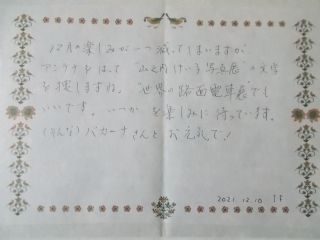 12月の楽しみが一つ減ってしまいますが、
アンテナをはって "山之内けい子写真展" の文字
を探しますね。"世界の路面電車展" でも
いいです。いつか を楽しみに待っています。
さんとお元気で!
2021.12.10